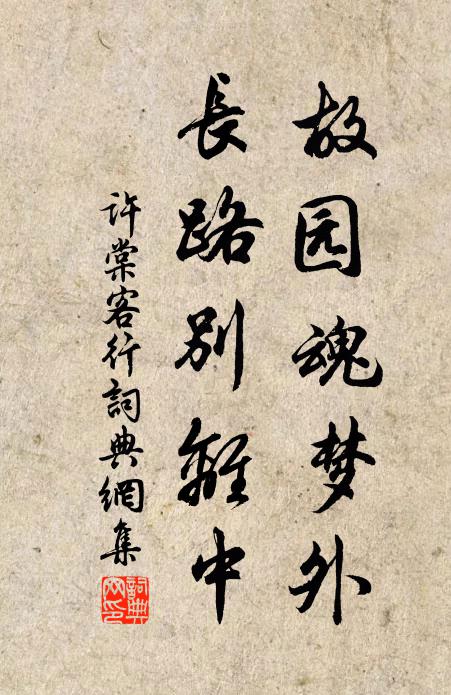 故园魂梦外
長路別離中
许棠客行詞典網集
詞典
网印